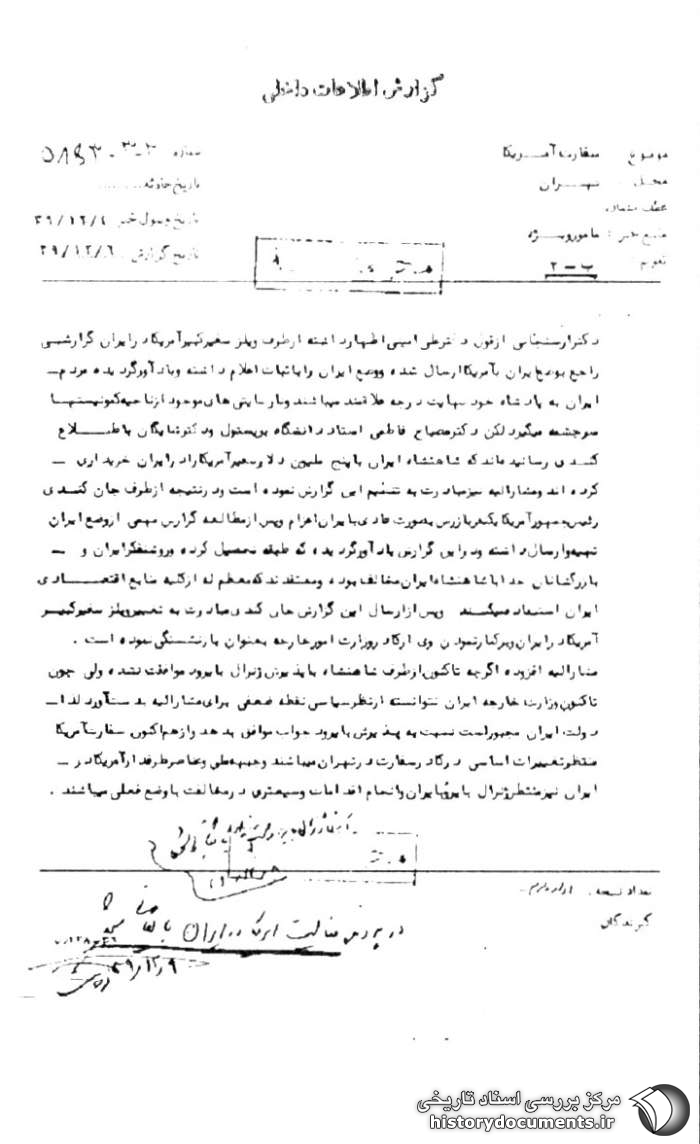 گزارش اطلاعات داخلی
موضوع سفارت آمریکا
محل تهران
عطف بشماره
منبع خبر : مامور ویژه
تقویم ب - ۲
شماره
تاریخ حادثه
تاریخ وصول خبر ۳۹/۱۲/۴
تاریخ گزارش ۳۹/۱۲/۶
دکتر ارسنجانی از قول دکتر علی امینی اظهار داشته از طرف ویلز سفیر کبیر آمریکا در ایران گزارشی
راجع بوضع ایران بآمریکا ارسال شده و وضع ایران را باثبات اعلام داشته و یادآور گردیده مردم
ایران به پادشاه خود نهایت درجه علاقمند میباشند و نارضایتی های موجود از ناحیه کمونیستها
سرچشمه میگیرد لکن دکتر مصباح فاطمی استاد دانشگاه پرینستون و دکتر شایگان باطلاع
کندی رسانیده‌اند که شاهنشاه ایران با پنج ملیون دلار سفیر آمریکا در ایران خریداری
کرده اند و مشارالیه نیز مبادرت به تنظیم این گزارش نموده است و در نتیجه از طرف جان کندی
رئیس جمهور آمریکا یکنفر بازرس بصورت عادی بایران اعزام و پس از مطالعه گزارش مهمی از وضع ایران
تهیه و ارسال داشته و در این گزارش یادآور گردیده که طبقه تحصیل کرده و روشنفکر ایران و
بازرگانان جدا با شاهنشاه ایران مخالف بوده و معتقدند که معظم له از کلیه منابع اقتصادی
ایران استفاده میکنند و پس از ارسال این گزارش جان کندی مبادرت به تغییر ویلز سفیر کبیر
آمریکا در ایران و برکنار نمودن وی از کادر وزارت امور خارجه بعنوان بازنشستگی نموده است .
مشارالیه افزوده اگر چه تاکنون از طرف شاهنشاه با پذیرش ژنرال بایرود موافقت نشده ولی چون
تاکنون وزارت خارجه ایران نتوانسته از نظر سیاسی نقطه ضعفی برای مشارالیه بدست آورد لذا
دولت ایران مجبور است نسبت به پذیرش بایرود جواب موافق بدهد و از هم اکنون سفارت آمریکا
منتظر تغییرات اساسی در کادر سفارت در تهران میباشند و جبهه ملی و عناصر طرفدار آمریکا در
ایران نیز منتظر ژنرال بایرود بایران و انجام اقدامات وسیعتری در مخالفت با وضع فعلی میباشند .
تعداد نسخه
گیرندگان
در پرونده فعالیت آمریکا در ایران بایگانی شود
۳۹/۱۲/۹
مرکز بررسی اسناد تاریخی
historydocuments.ir